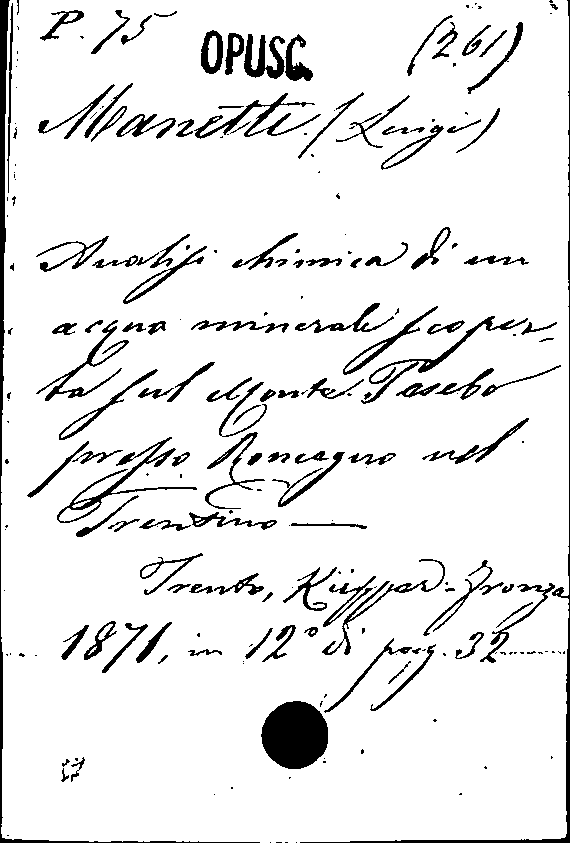 P. 75 OPUSC. (261)
Manetti (Luigi)
Analisi chimica di un
acqua minerale scoper-
ta sul Monte Tesobo
presso Roncegno nel
Trentino —
Trento, Küpper-Fronza
1871, in 12° di pag. 32